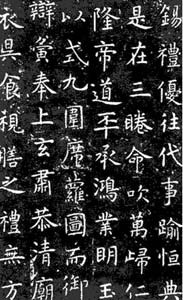 錫禮優往代事踰恒典
是在三睠命吹萬歸仁
隆帝道平承鴻業明玉
以式九圍席蘿圖而御
辯黃奉上玄肅恭清廟
衣具食親膳之禮無方